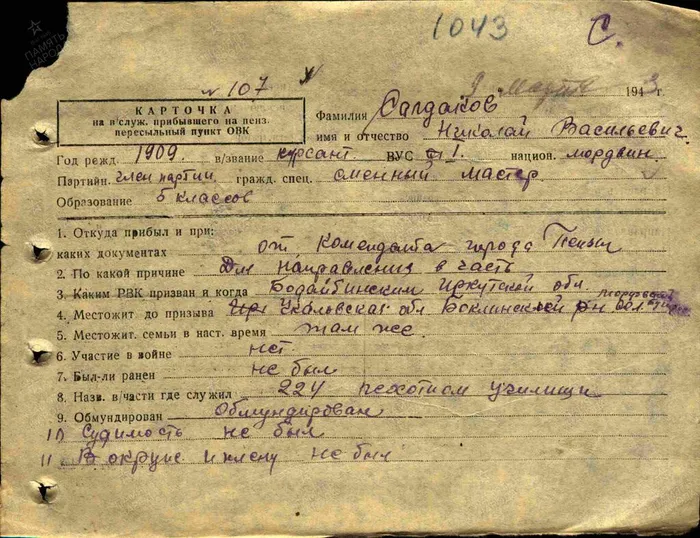 ПАМЯТЬ НАРОДА
1043 С.
№ 107 9 марта 1943 г.
КАРТОЧКА
на в/служ. прибывшего на пенз.
пересыльный пункт ОВК
Фамилия Салдаков
имя и отчество Николай Васильевич
Год рожд. 1909. в/звание курсант ВУС № 1. национ. мордвин
Партийн. член партии гражд. спец. сменный мастер
Образование 5 классов
1. Откуда прибыл и при:
каких документах от Коменданта города Пензы
2. По какой причине Для направления в часть
3. Каким РВК призван и когда Бодайбинским Иркутской обл.
4. Местожит. до призыва Чкаловская обл. р-н
5. Местожит. семьи в наст. время там же.
6. Участие в войне нет
7. Был-ли ранен не был
8. Назв. в/части где служил 224 пехотном училищи
9. Обмундирован Обмундирован
11) Судимость не был
11 В окруже и плену не был